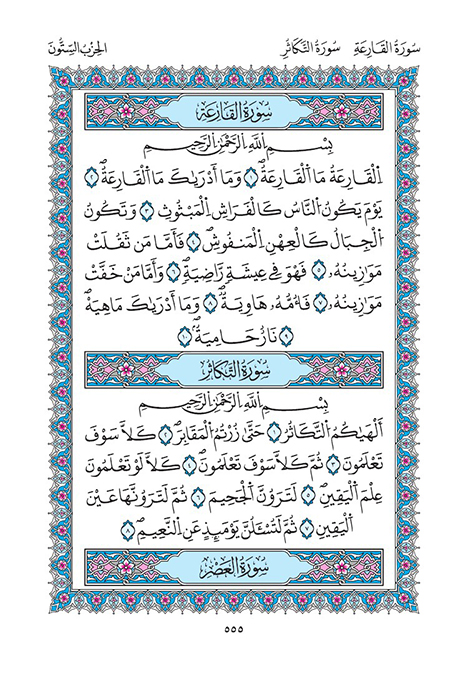 سُورَةُ اُ۬لْقَارِعَةِ سُورَةُ اُ۬لتَّكَاثُرِ اَ۬لْحِزْبُ اُ۬لسِّتُّونَ
سُورَةُ اُ۬لْقَارِعَةِ
بِسْمِ اِ۬للَّهِ اِ۬لرَّحْمَٰنِ اِ۬لرَّحِيمِ
اِ۬لْقَارِعَةُ مَا اَ۬لْقَارِعَةُۖ ١ وَمَآ أَدْر۪يٰكَ مَا اَ۬لْقَارِعَةُۖ ٢
يَوْمَ يَكُونُ اُ۬لنَّاسُ كَالْفَرَاشِ اِ۬لْمَبْثُوثِ ٣ وَتَكُونُ
اُ۬لْجِبَالُ كَالْعِهْنِ اِ۬لْمَنفُوشِۖ ٤ فَأَمَّا مَن ثَقُلَتْ
مَوَٰزِينُهُۥ ٥ فَهُوَ فِے عِيشَةٖ رَّاضِيَةٖۖ ٦ وَأَمَّا مَنْ خَفَّتْ
مَوَٰزِينُهُۥ ٧ فَأُمُّهُۥ هَاوِيَةٞۖ ٨ وَمَآ أَدْر۪يٰكَ مَا هِيَهْۖ
٩ نَارٌ حَامِيَةٞۖ ١٠
سُورَةُ اُ۬لتَّكَاثُرِ
بِسْمِ اِ۬للَّهِ اِ۬لرَّحْمَٰنِ اِ۬لرَّحِيمِ
أَلْه۪يٰكُمُ اُ۬لتَّكَاثُرُ ١ حَتَّىٰ زُرْتُمُ اُ۬لْمَقَابِرَۖ ٢ كَلَّا سَوْفَ
تَعْلَمُونَۖ ٣ ثُمَّ كَلَّا سَوْفَ تَعْلَمُونَۖ ٤ كَلَّا لَوْ تَعْلَمُونَ
عِلْمَ اَ۬لْيَقِينِۖ ٥ لَتَرَوُنَّ اَ۬لْجَحِيمَۖ ٦ ثُمَّ لَتَرَوُنَّهَا عَيْنَ
اَ۬لْيَقِينِۖ ٧ ثُمَّ لَتُسْـَٔلُنَّ يَوْمَئِذٍ عَنِ اِ۬لنَّعِيمِۖ ٨
سُورَةُ اُ۬لْعَصْرِ
٥٥٥